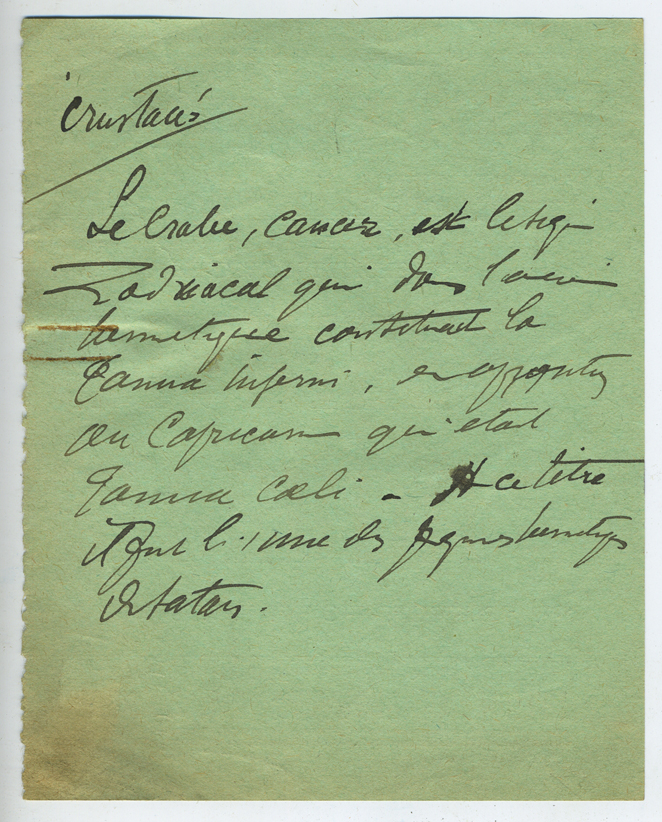 Crustacés
Le Crabe, cancer, est le signe
Zodiacal qui dans l'
hermetique constituait la
Janua inferni, en opposition
au Capricorne qui était
Janua Coeli - A ce titre
il fut l'une des figures hermetiques
de Satan.